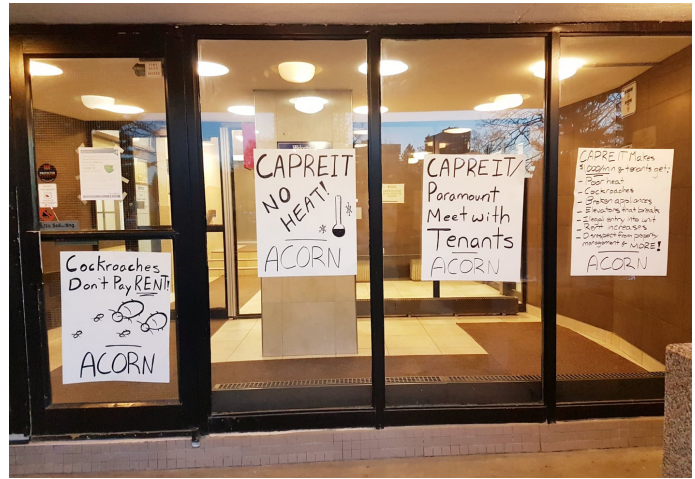 Cockroaches
Don't Pay RENT!
ACORN
CAPREIT
NO
HEAT!
ACORN
CAPREIT/
Paramount
Meet with
Tenants
ACORN
CAPREIT Makes
- Poor heat
- Cockroaches
- Broken appliances
- Elevators that break
- Illegal entry into unit
- Rent increases
- Disrespect from property
management & MORE!
ACORN